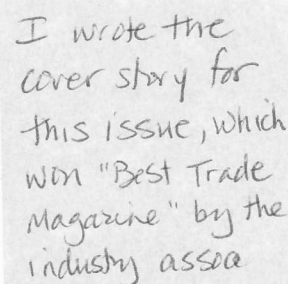 I wrote the
cover story for
this issue, which
won "Best Trade
Magazine" by the
industry assoa